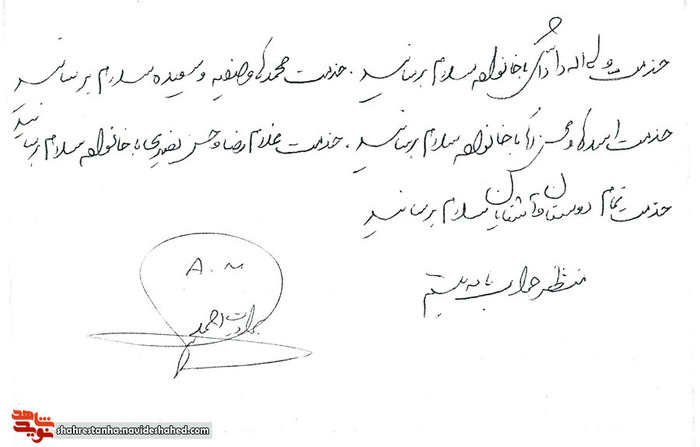 خدمت ولی اله داداشی با خانواده سلام برسانید. خدمت محمد آقا و صفیه و سعیده سلام برسانید
خدمت اسد آقا و حسن آقا با خانواده سلام برسانید. خدمت غلامرضا و حسن نصیری با خانواده سلام برسانید
خدمت تمام دوستان و آشنایان سلام برسانید
منتظر جواب نامه هستم
A.M
برادرت احمد
نوید شاهد
shahrestanha.navideshahed.com